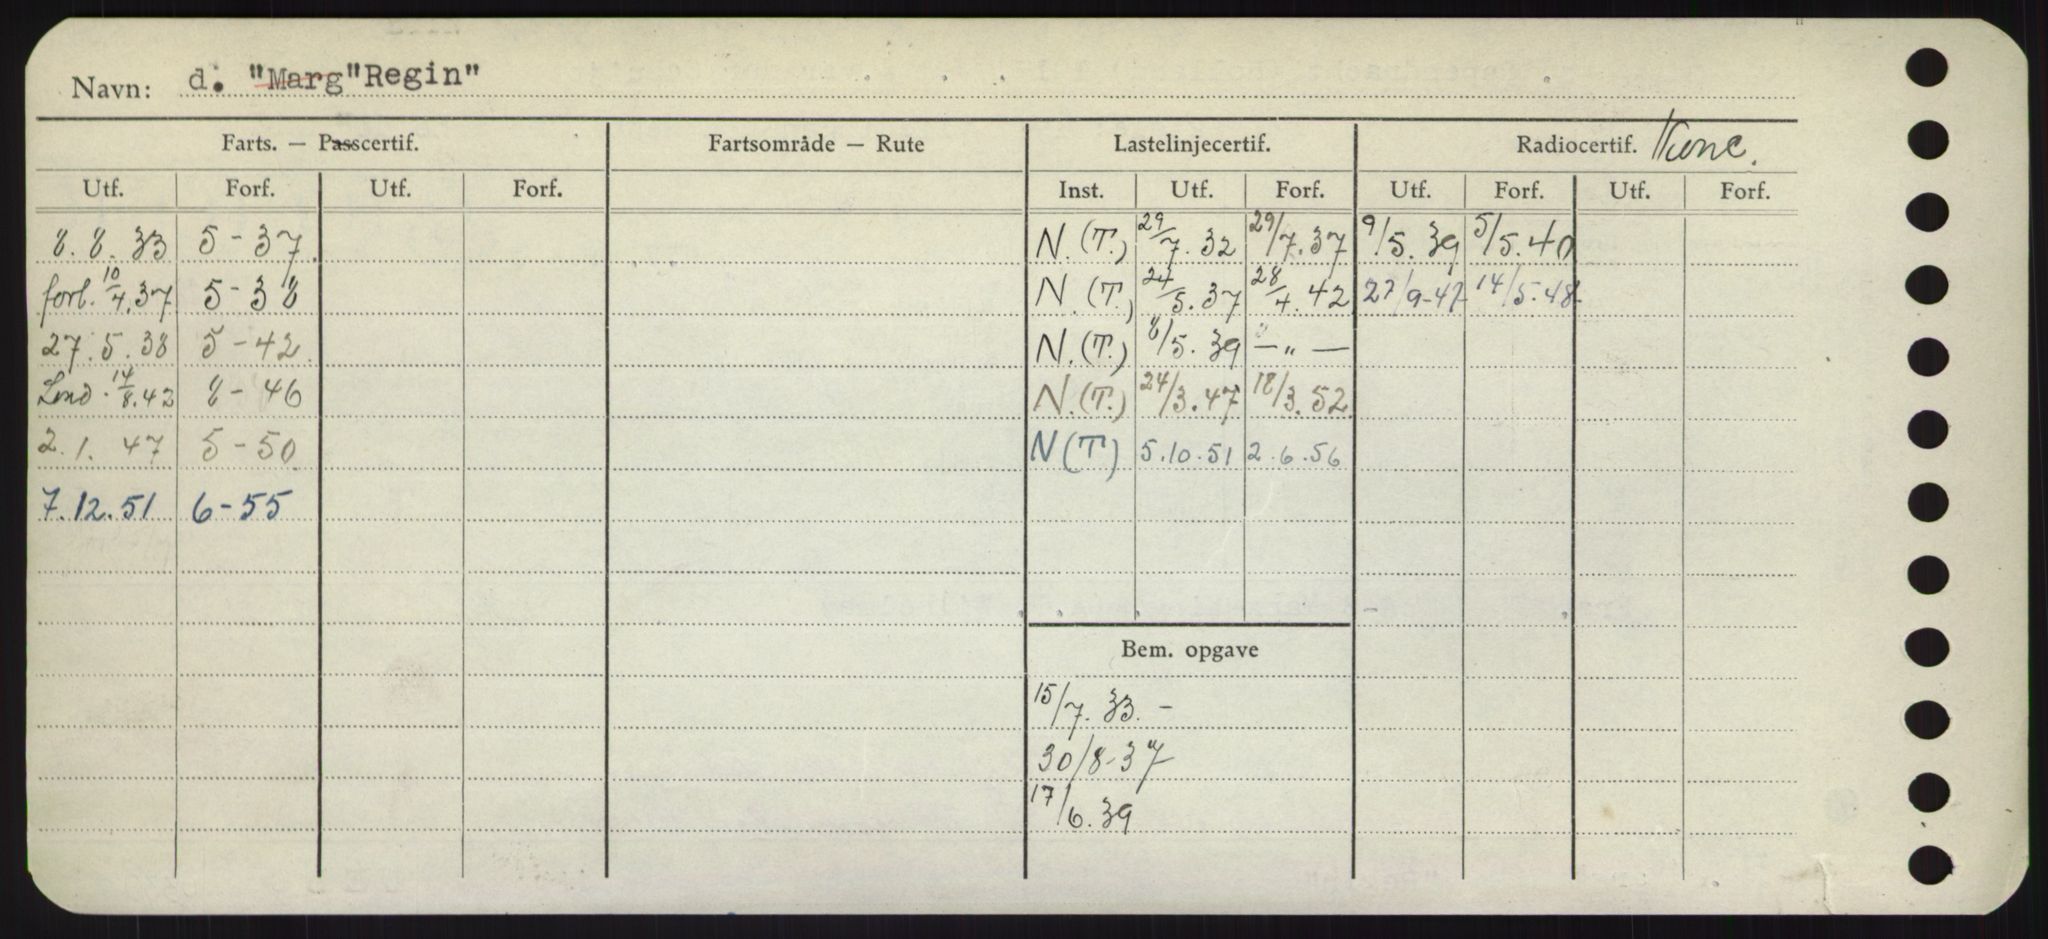 Navn: d. "Marg "Regin"
Farts. — Passcertif. Fartsområde — Rute Lastelinjecertif. Radiocertif.
Utf. Forf. Utf. Forf. Inst. Utf. Forf. Utf. Forf. Utf. Forf.
8.8.33 5-37 N.(T.) 29/7.32 29/7.37 9/5.39 5/5.40
forl. 10/4.37 5-38 N.(T.) 24/5.37 28/4.42 27/9-47 14/5.48
27.5.38 5-42 N.(T.) 8/5.39 —"—
Lond. 14/8.42 8-46 N.(T.) 24/3.47 18/3.52
2.1.47 5-50 N(T) 5.10.51 2.6.56
7.12.51 6-55
Bem. opgave
15/7.33.-
30/8-37
17/6.39